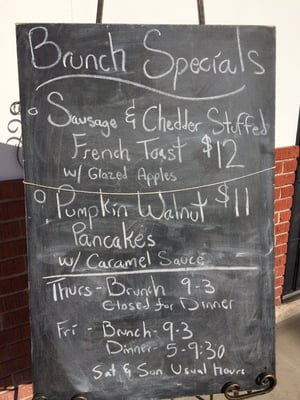 Brunch Specials
Sausage & Chedder Stuffed
French Toast $12
w/ Glazed Apples
Pumpkin Walnut $11
Pancakes
w/ Caramel Sauce
Thurs - Brunch 9-3
Closed for Dinner
Fri - Brunch - 9-3
Dinner - 5-9:30
Sat & Sun Usual Hours